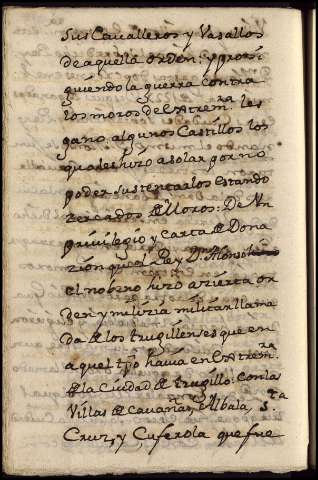 sus Cavalleros y Vasallos
de aquella orden: y prosi
guiendo la guerra contra
los moros de Extrem.ra les
gano algunos Castillos los
quales hizo asolar por no
poder sustentarlos estando
zercados de Moros: De Un
privilegio y carta de Dona
zión que el Rey Dn Alonso
el nobeno hizo a zierta or
den y milizia militar llama
da de los trugillenses que en
aquel tpo havia en Extrem.ra
de la Ciudad de trugillo: con las
Villas de Cavañas, Albala, S.ta
Cruz, y Cuferola que fue